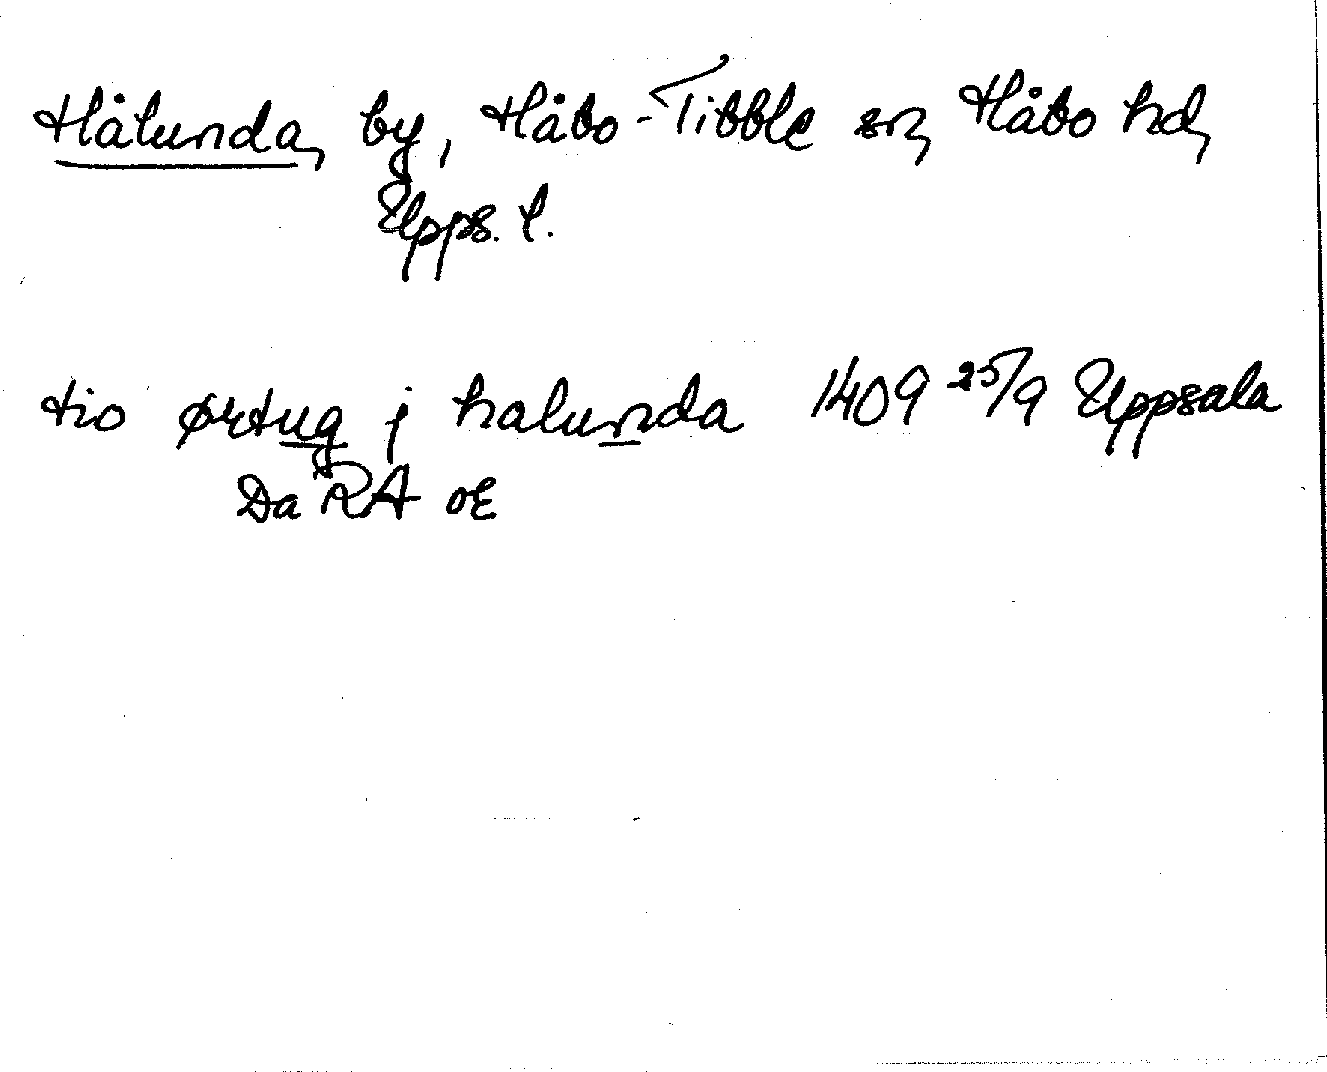 Hålunda, by, Håbo-Tibble sn, Håbo hd,
Upps. l.
tio ørtug j halunda 1409 25/9 Uppsala
Da RA oE